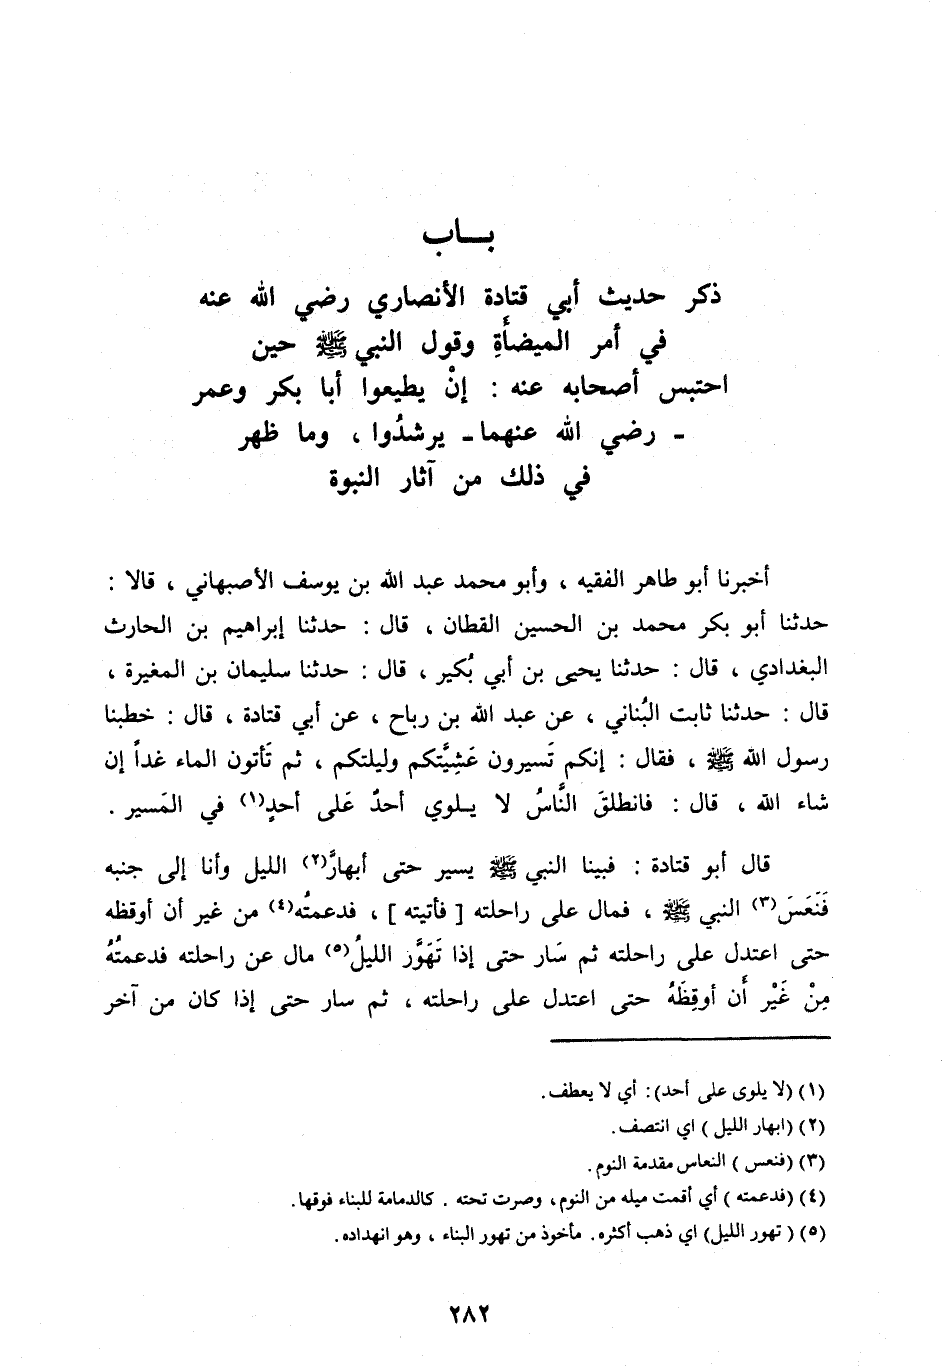 بـــاب
ذكر حديث أبي قتادة الأنصاري رضي الله عنه
في أمر الميضأَةِ وقول النبي ﷺ حين
احتبس أصحابه عنه : إنْ يطيعوا أبا بكر وعمر
ـ رضي الله عنهما ـ يرشدُوا ، وما ظهر
في ذلك من آثار النبوة
أخبرنا أبو طاهر الفقيه ، وأبو محمد عبد الله بن يوسف الأصبهاني ، قالا :
حدثنا أبو بكر محمد بن الحسين القطان ، قال : حدثنا إبراهيم بن الحارث
البغدادي ، قال : حدثنا يحيى بن أبي بُكير ، قال : حدثنا سليمان بن المغيرة ،
قال : حدثنا ثابت البُناني ، عن عبد الله بن رباح ، عن أبي قتادة ، قال : خطبنا
رسول الله ﷺ ، فقال : إنكم تَسيرون عَشِيَّتكم وليلتكم ، ثم تَأتون الماء غداً إن
شاء الله ، قال : فانطلقَ النَّاسُ لا يـلوي أحدٌ عَلى أحدٍ(١) في المَسير .
قال أبو قتادة : فبينا النبي ﷺ يسير حتى أبهارَّ(٢) الليل وأنا إلى جنبه
فَنَعَسَ(٣) النبي ﷺ ، فمال على راحلته [ فأتيته ] ، فدعمتُه(٤) من غير أن أوقظه
حتى اعتدل على راحلته ثم سَار حتى إذا تَهَوَّر الليلُ(٥) مال عن راحلته فدعمتُهُ
مِنْ غَيْر أَن أوقِظَهُ حتى اعتدل على راحلته ، ثم سار حتى إذا كان من آخر
(١) (لا يلوى على أحد): أي لا يعطف.
(٢) (ابهار الليل ) اي انتصف.
(٣) (فنعس ) النعاس مقدمة النوم.
(٤) (فدعمته ) أي أقمت ميله من النوم، وصرت تحته . كالدمامة للبناء فوقها.
(٥) ( تهور الليل) اي ذهب أكثره. مأخوذ من تهور البناء ، وهو انهداده.
٢٨٢